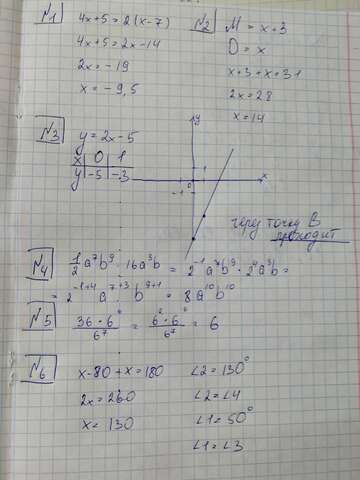 N1
4x+5=2(x-7)
4x+5=2x-14
2x=-19
x=-9,5
N2
M = x+3
D = x
x+3+x=31
2x=28
x=14
N3
y=2x-5
x | 0 | 1
y | -5 | -3
y
x
1
-1
0
через точку B
проходит
N4
1/2 a⁷b⁹ · 16a³b = 2⁻¹a⁷b⁹ · 2⁴a³b =
= 2⁻¹⁺⁴ a⁷⁺³ b⁹⁺¹ = 8a¹⁰b¹⁰
N5
36·6⁶/6⁷ = 6²·6⁶/6⁷ = 6
N6
x-80+x=180
2x=260
x=130
∠2=130°
∠2=∠4
∠1=50°
∠1=∠3